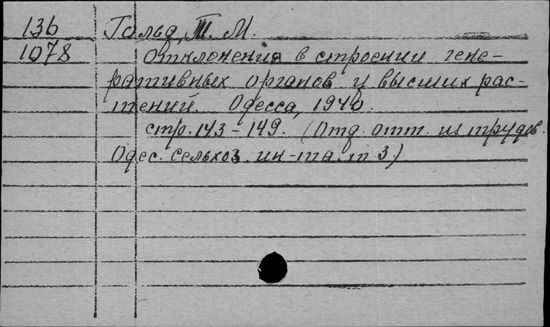 136 Гольд, Т. М.
1078 Отклонения в строении гене-
ративных органов у высших рас-
тений. Одесса, 1940.
стр. 143-149. (Отд. отт. из трудов.
Одес. сельхоз. ин-та. т 3)